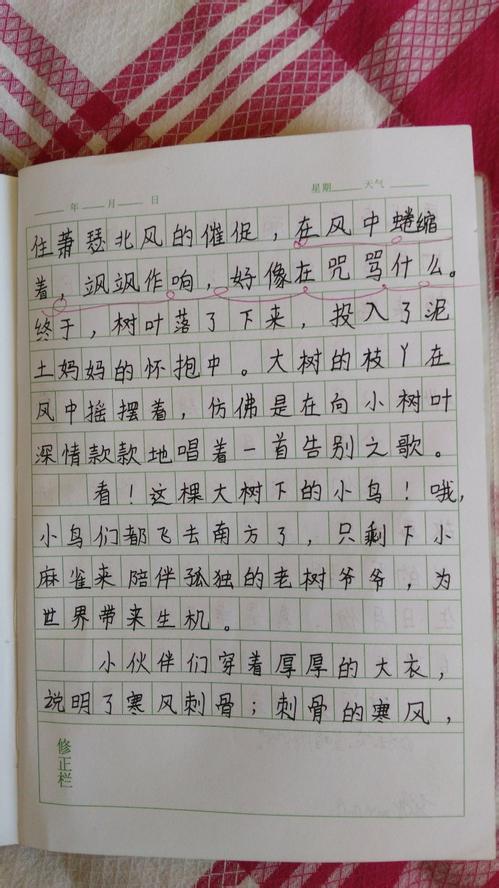 年 月 日 星期 天气
住萧瑟北风的催促，在风中蜷缩
着，飒飒作响，好像在咒骂什么。
终于，树叶落了下来，投入了泥
土妈妈的怀抱中。大树的枝丫在
风中摇摆着，仿佛是在向小树叶
深情款款地唱着一首告别之歌。
看！这棵大树下的小鸟！哦，
小鸟们都飞去南方了，只剩下小
麻雀来陪伴孤独的老树爷爷，为
世界带来生机。
小伙伴们穿着厚厚的大衣，
说明了寒风刺骨；刺骨的寒风，
修正栏